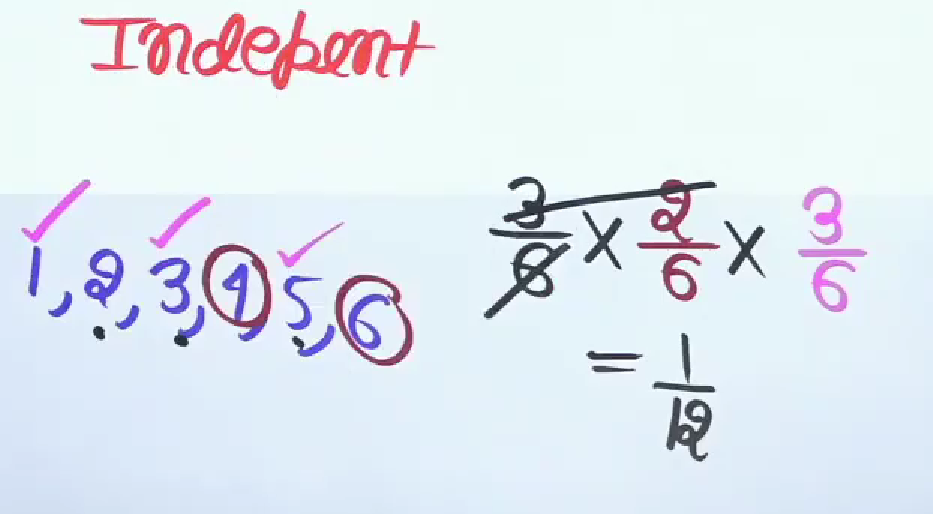 Indepent
1, 2, 3, 4, 5, 6
3/6 × 2/6 × 3/6
= 1/12